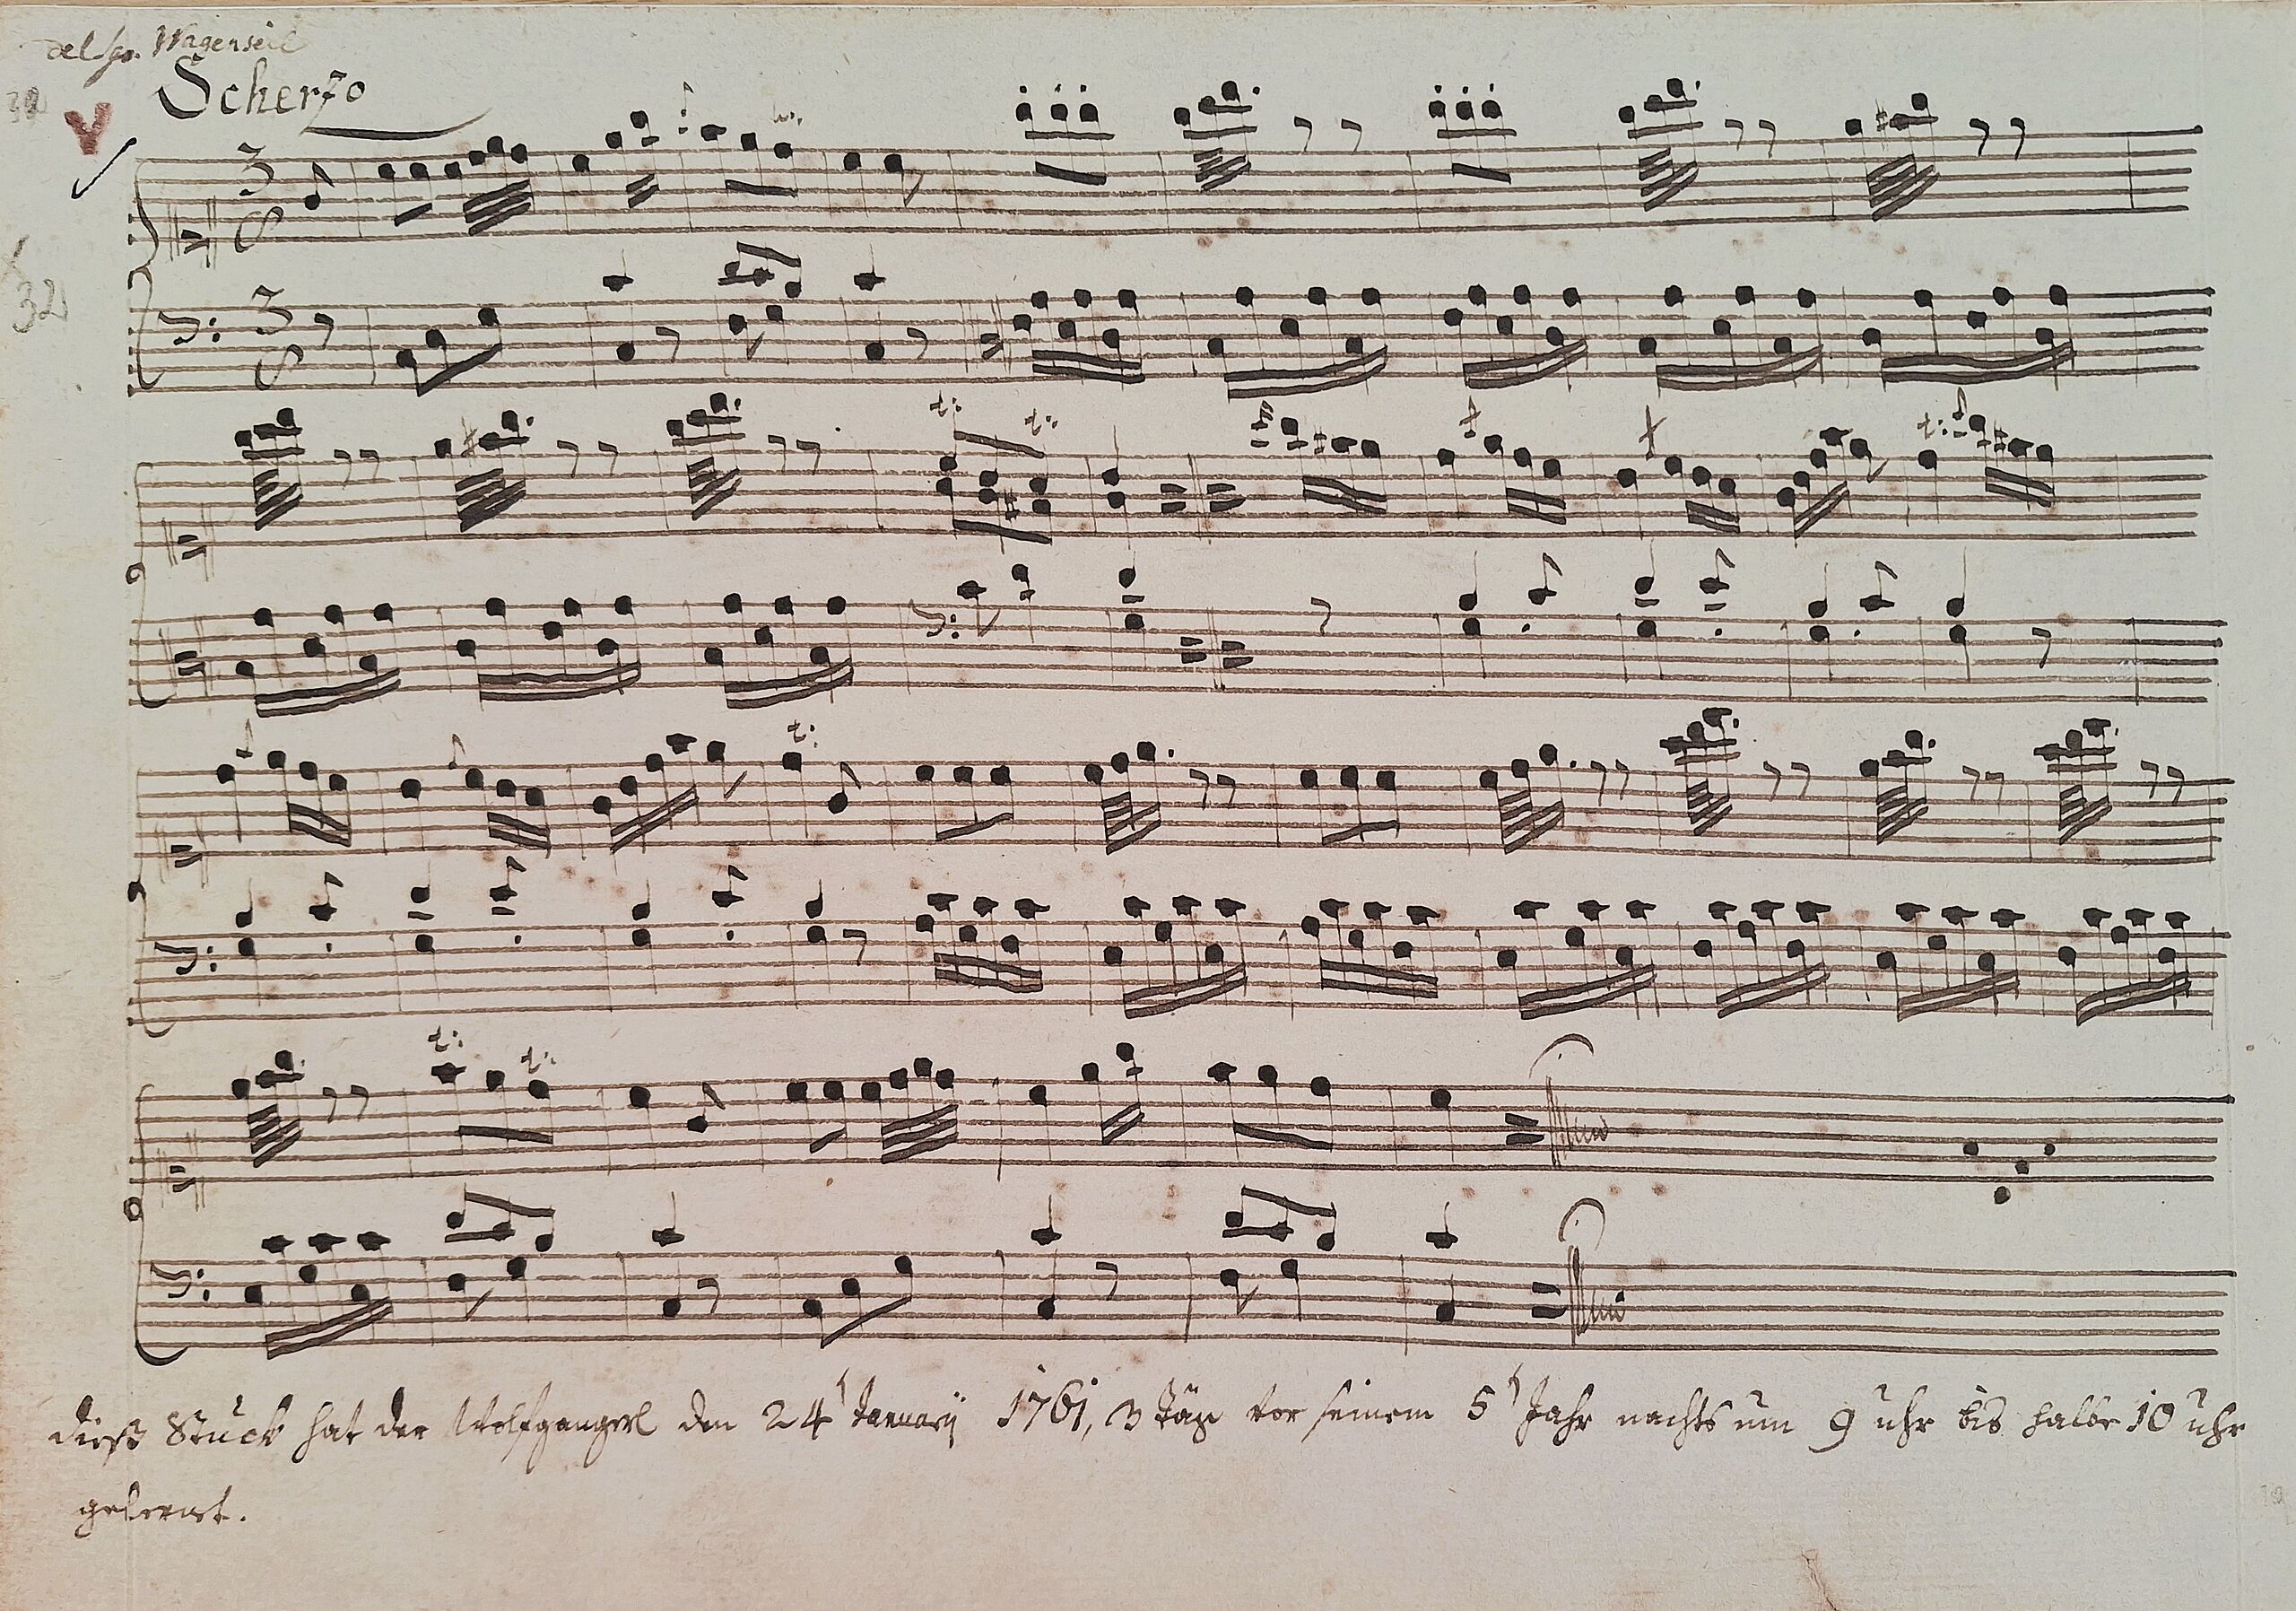 del Sgr. Wagenseil
Scherzo
32
3
8
3
8
t: t:
t:
t:
t: t:
dieß Stuck hat der Wolfgangerl den 24t Januarij 1761, 3 Täge vor seinem 5t Jahr nachts um 9 uhr bis halbe 10 uhr
gelernet.